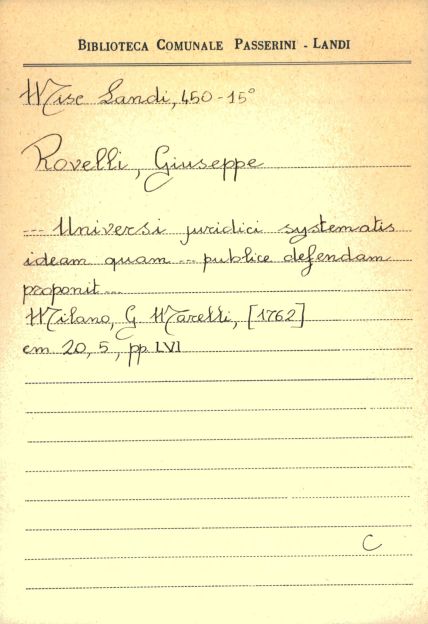 BIBLIOTECA COMUNALE PASSERINI - LANDI
Misc Landi, 450-15°
Rovelli, Giuseppe
--- Universi juridici systematis
ideam quam --- publice defendam
proponit ...
Milano, G. Marelli, [1762]
cm 20,5, pp LVI
C